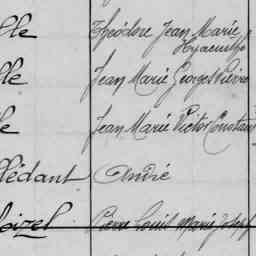 lle Théodore Jean Marie
Hyacinthe
lle Jean Marie Georges Pierre
le Jean Marie Victor Constant
lédant André
loizel Pierre Louis Marie Joseph